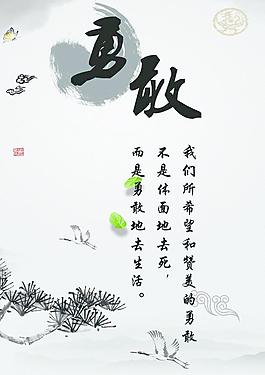 勇敢
我们所希望和赞美的勇敢
不是体面地去死，
而是勇敢地去生活。